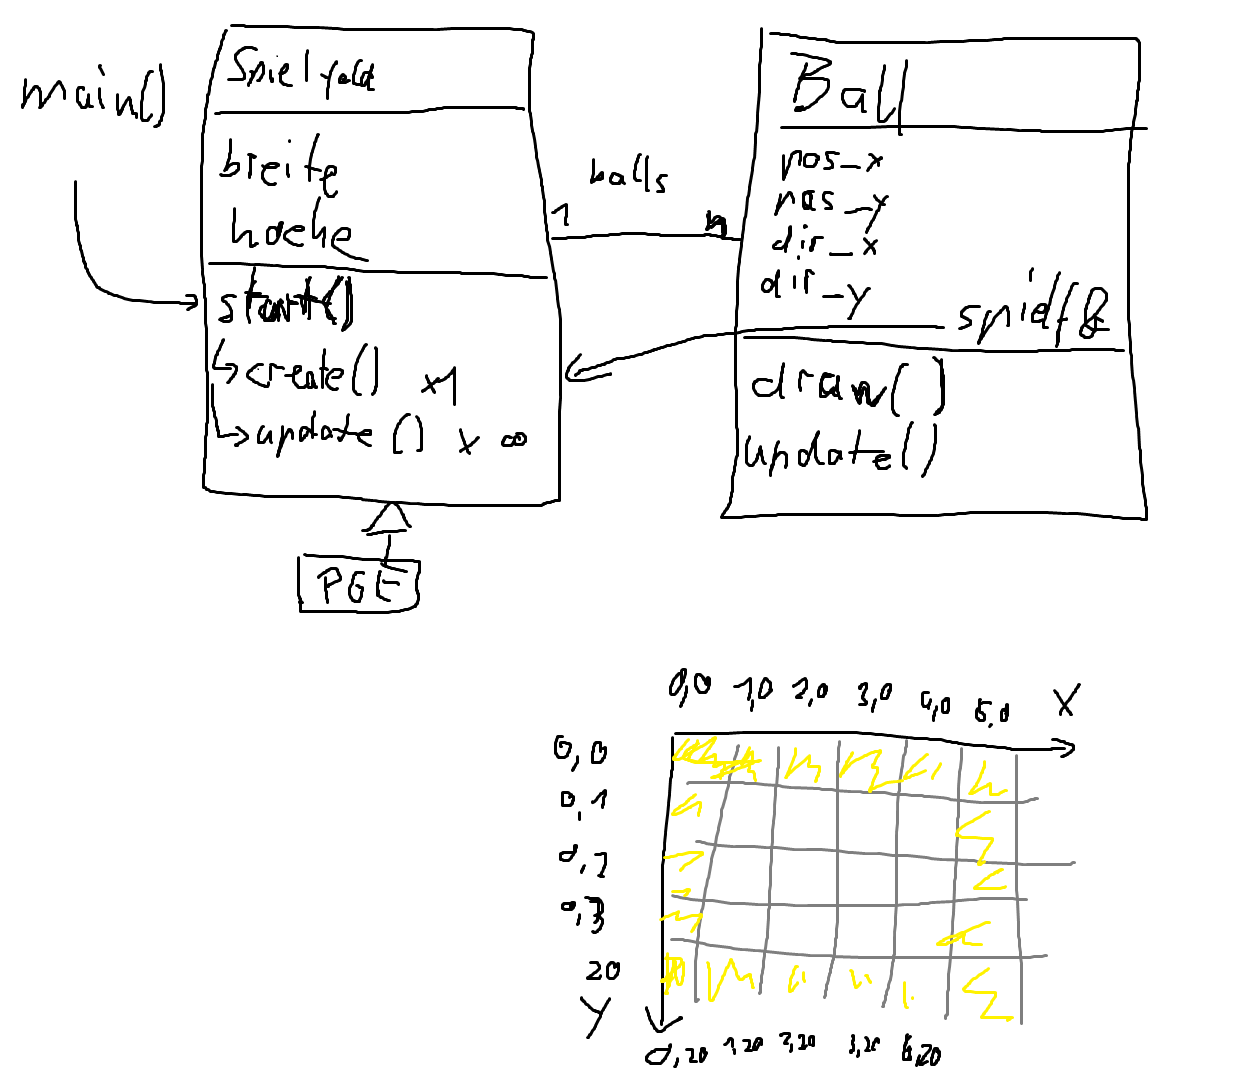 main()
Spielfeld
breite
hoehe
start()
create() x1
update() x ∞
PGE
balls
1 n
Ball
pos_x
pos_y
dir_x
dir_y
draw()
update()
0,0 1,0 2,0 3,0 4,0 5,0 X
0,0
0,1
0,2
0,3
20
Y
0,20 1,20 2,20 3,20